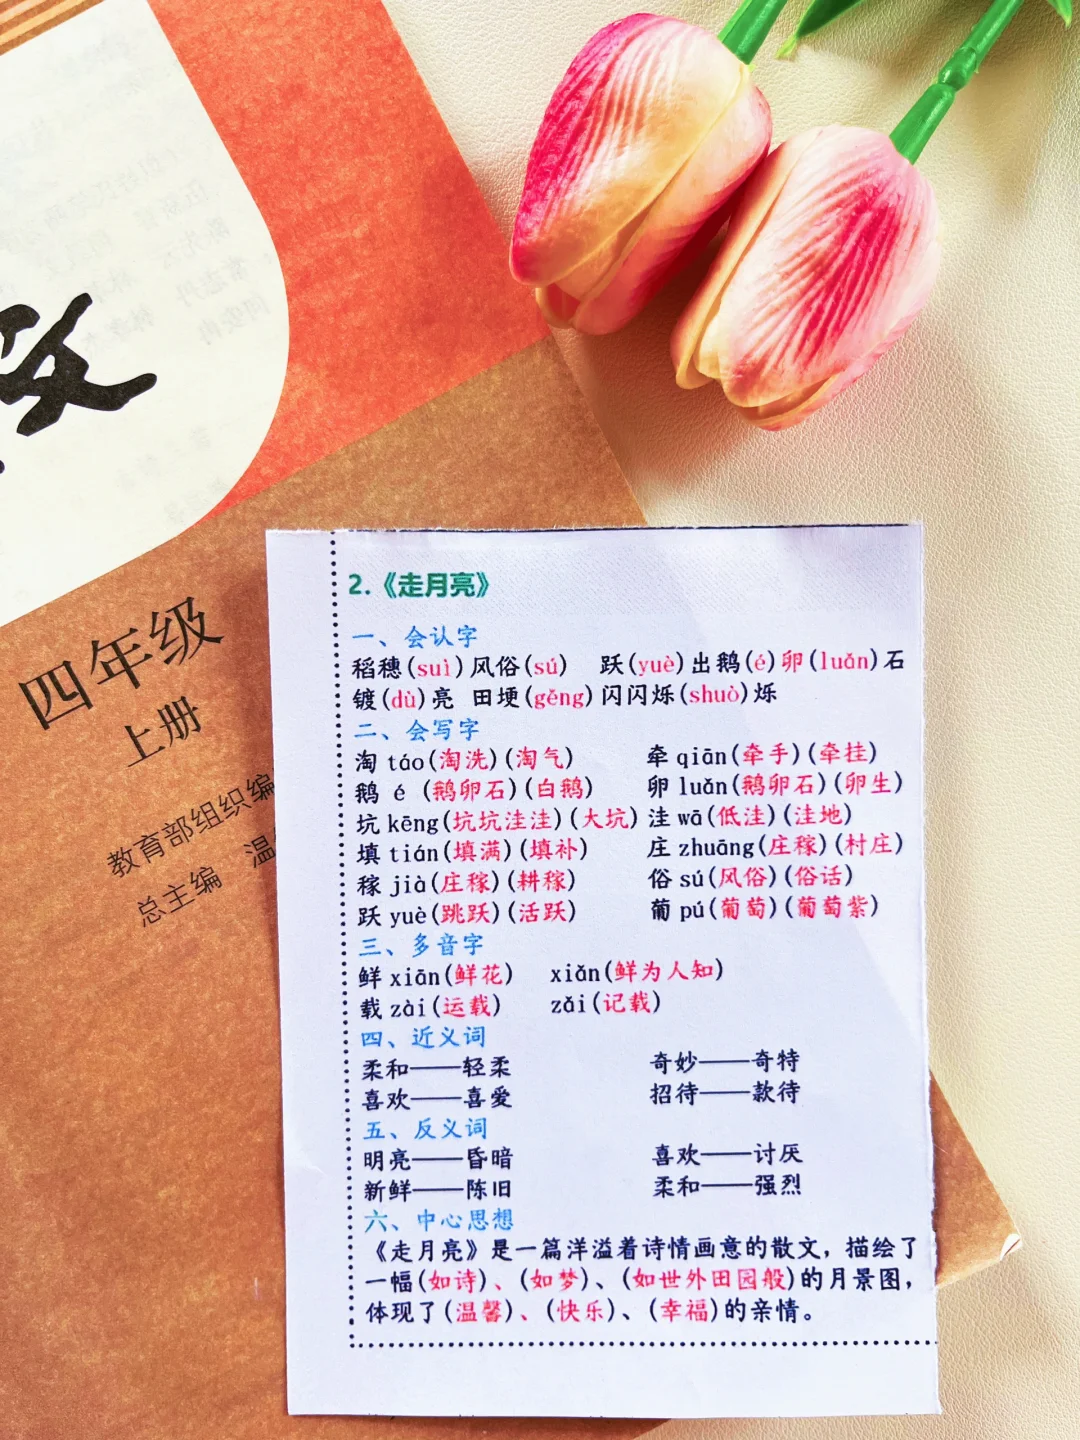 文
四年级
上册
教育部组织编
总主编 温
2.《走月亮》
一、会认字
稻穗(suì)风俗(sú) 跃(yuè)出鹅(é)卵(luǎn)石
镀(dù)亮 田埂(gěng)闪闪烁(shuò)烁
二、会写字
淘 táo(淘洗)(淘气) 牵 qiān(牵手)(牵挂)
鹅 é (鹅卵石)(白鹅) 卵 luǎn(鹅卵石)(卵生)
坑 kēng(坑坑洼洼)(大坑) 洼 wā(低洼)(洼地)
填 tián(填满)(填补) 庄 zhuāng(庄稼)(村庄)
稼 jià(庄稼)(耕稼) 俗 sú(风俗)(俗话)
跃 yuè(跳跃)(活跃) 葡 pú(葡萄)(葡萄紫)
三、多音字
鲜 xiān(鲜花) xiǎn(鲜为人知)
载 zài(运载) zǎi(记载)
四、近义词
柔和——轻柔 奇妙——奇特
喜欢——喜爱 招待——款待
五、反义词
明亮——昏暗 喜欢——讨厌
新鲜——陈旧 柔和——强烈
六、中心思想
《走月亮》是一篇洋溢着诗情画意的散文，描绘了
一幅(如诗)、(如梦)、(如世外田园般)的月景图，
体现了(温馨)、(快乐)、(幸福)的亲情。